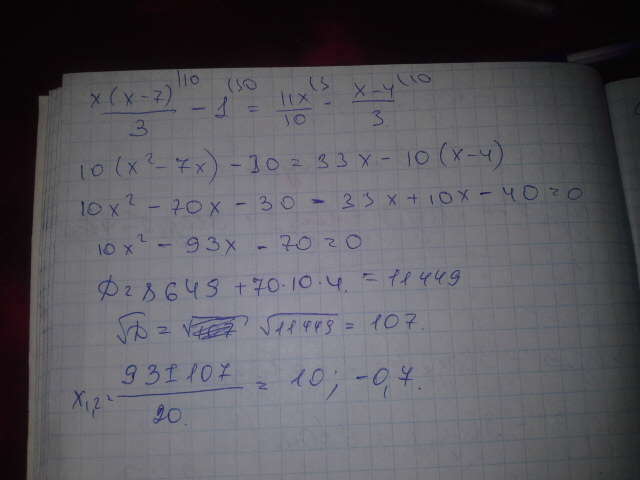 x(x-7)/3 |10 - 1 (30 = 11x/10 (3 - x-4/3 (10
10(x² - 7x) - 30 = 33x - 10(x-4)
10x² - 70x - 30 - 33x + 10x - 40 = 0
10x² - 93x - 70 = 0
D = 8649 + 70·10·4. = 11449
√D = √11449 = 107.
x₁,₂ = 93±107/20. = 10; -0,7.